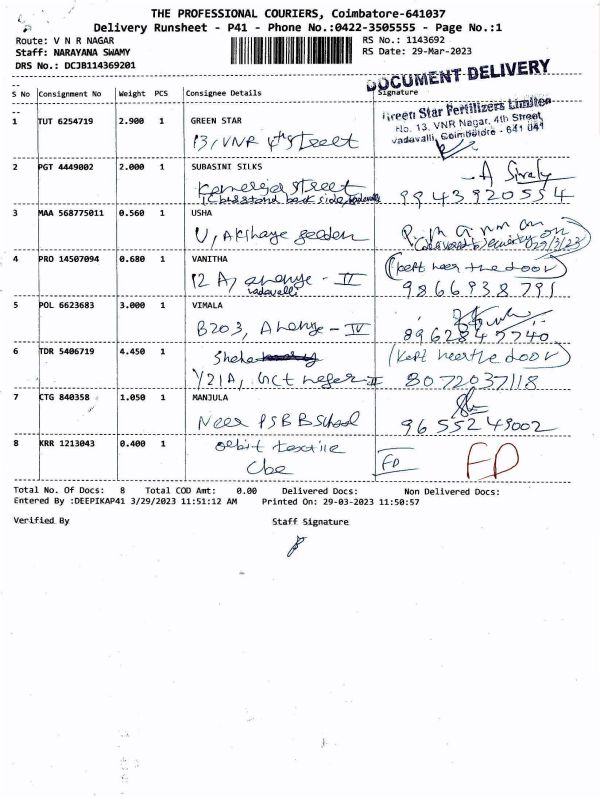 THE PROFESSIONAL COURIERS, Coimbatore-641037
Delivery Runsheet - P41 - Phone No.:0422-3505555 - Page No.:1
Route: V N R NAGAR
RS No.: 1143692
Staff: NARAYANA SWAMY
RS Date: 29-Mar-2023
DRS No.: DCJB114369201
DOCUMENT DELIVERY
S No Consignment No Weight PCS Consignee Details Signature
1 TUT 6254719 2.900 1 GREEN STAR
Green Star Fertilizers Limited
No. 13, VNR Nagar, 4th Street,
Vadavalli, Coimbatore - 641 041
13, VNR 4th Street
2 PGT 4449002 2.000 1 SUBASINI SILKS
street
back side
9943920554
3 MAA 568775011 0.560 1 USHA
29/3/23
4 PRO 14507094 0.680 1 VANITHA
(kept neer the door)
12 A, - IV
vadavalli
9866938791
5 POL 6623683 3.000 1 VIMALA
B203, - IV
8962845740
6 TDR 5406719 4.450 1
(kept neer the door)
Y21A,
8072037118
7 CTG 840358 1.050 1 MANJULA
Neer PSBB School
9655249002
8 KRR 1213043 0.400 1 orbit textile
Cbe
FD FD
Total No. Of Docs: 8 Total COD Amt: 0.00 Delivered Docs: Non Delivered Docs:
Entered By :DEEPIKAP41 3/29/2023 11:51:12 AM Printed On: 29-03-2023 11:50:57
Verified By Staff Signature